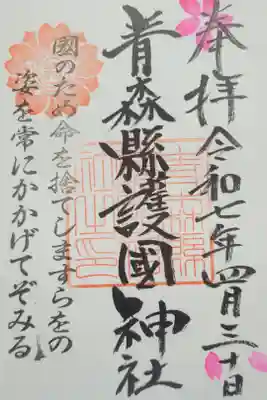 奉拝 令和七年四月三十日
青森縣護國神社
國のため命を捨てしますらをの
姿を常にかかげてぞみる